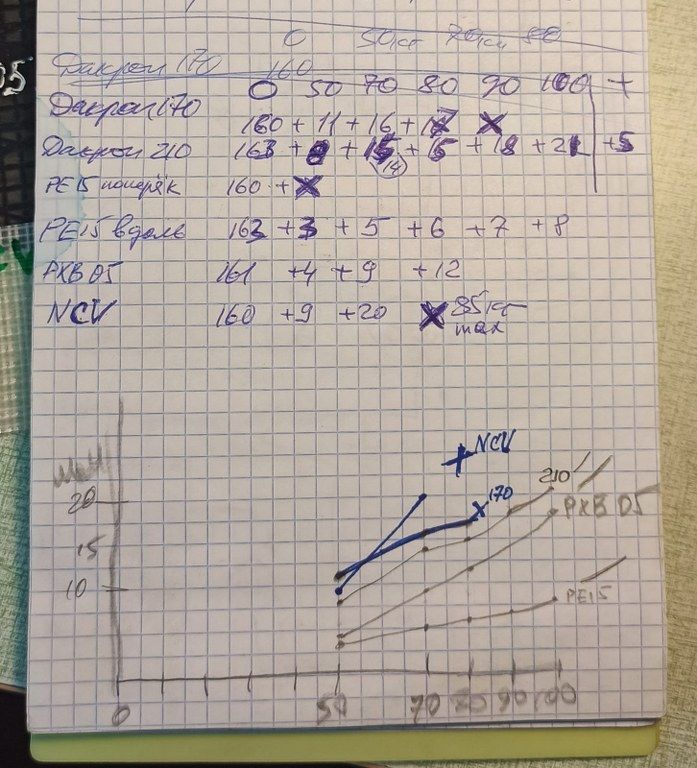 05
0 50кг 70кг 80
Дакрон 170 160
0 50 70 80 90 100 +
Дакрон 170
160 + 11 + 16 + 17 X
Дакрон 210 163 + 8 + 15 + 15 + 18 + 21 +5
14
PE15 поперёк 160 + X
PE15 вдоль 163 +3 + 5 + 6 + 7 + 8
PXB 05 161 +4 +9 +12
NCV 160 +9 +20 X 85кг
max
NCV
20 170 210 PXB 05
15
10 PE15
0 50 70 80 90 100